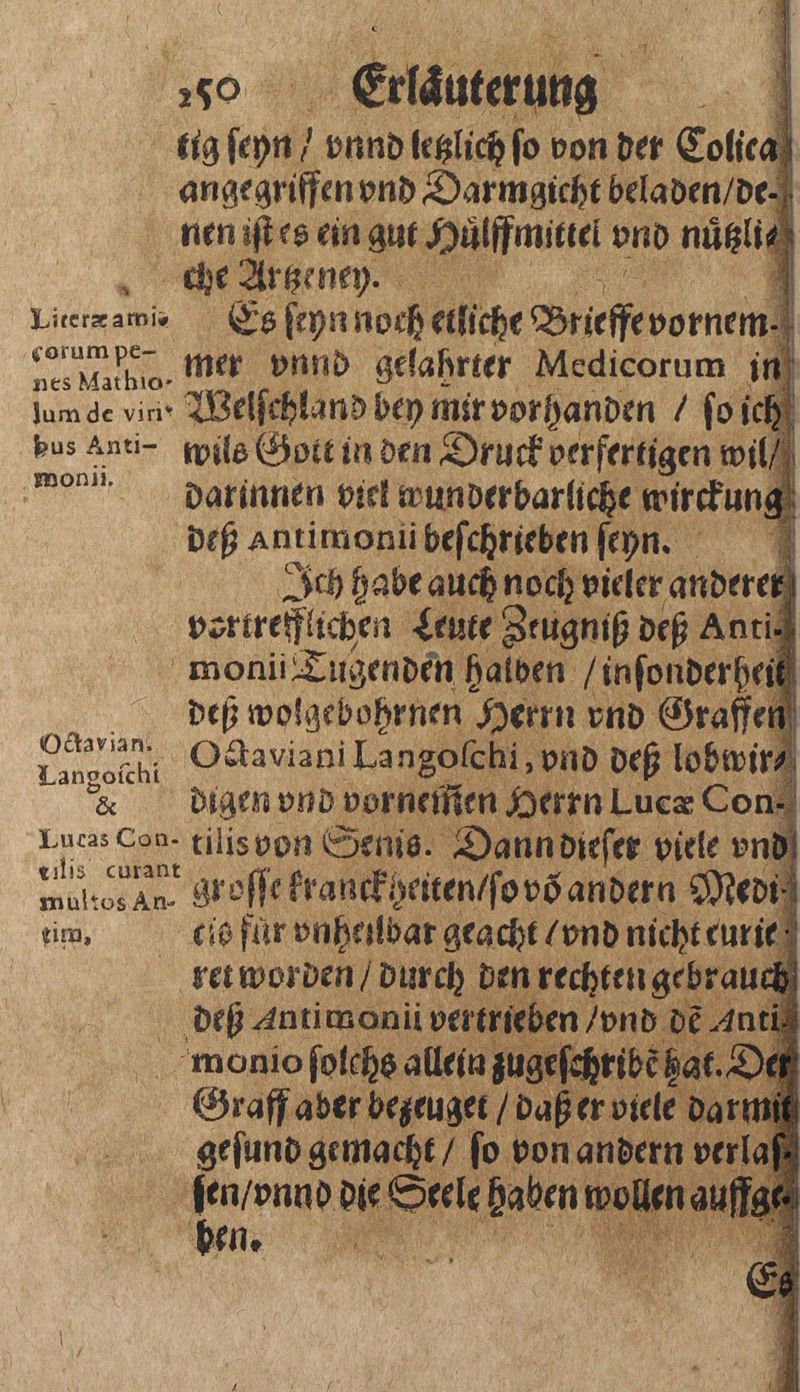 250 Erläuterung
tig ſeyn / vnnd letzlich ſo von der Colica
angegriffen vnd Darmgicht beladen/de-
nen iſt es ein gut Hülffmittel vnd nützli-
che Artzeney.
Literæ ami-
corum pe-
nes Mathio-
lum de viri-
bus Anti-
monii.
Es ſeyn noch etliche Brieffe vornem-
mer vnnd gelahrter Medicorum in
Welſchland bey mir vorhanden / ſo ich
wils Gott in den Druck verfertigen wil/
darinnen viel wunderbarliche wirckung
deß Antimonii beſchrieben ſeyn.
Ich habe auch noch vieler anderer
vortrefflichen Leute Zeugniß deß Anti-
monii Tugenden halben / inſonderheit
deß wolgebohrnen Herrn vnd Graffen
Octavian.
Langoſchi
&
Lucas Con-
tilis curant
multos An-
tim,
Octaviani Langoſchi, vnd deß lobwir-
digen vnd vornem̃ſten Herrn Lucæ Con-
tilis von Senis. Dann dieſer viele vnd
groſſe kranckheiten/ſo võ andern Medi-
cis für vnheilbar geacht / vnd nicht curie-
ret worden / durch den rechten gebrauch
deß Antimonii vertrieben /vnd dẽ Anti-
monio ſolchs allein zugeſchribẽ hat. Der
Graff aber bezeuget / daß er viele darmit
geſund gemacht / ſo von andern verlaſ-
ſen/vnnd die Seele haben wollen auffge-
ben.
Es